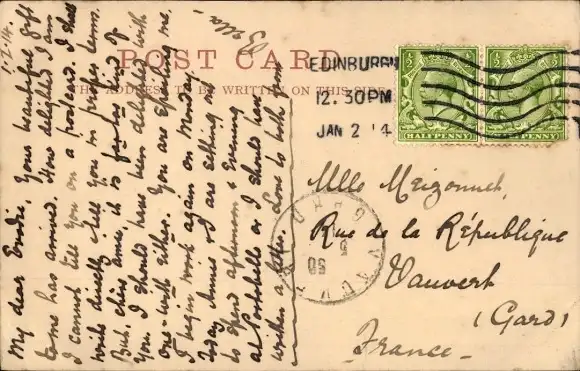 POST CARD
THE ADDRESS TO BE WRITTEN ON THIS SIDE
EDINBURGH
12.30PM
JAN 2 14
HALFPENNY
HALFPENNY
Mlle Meizonnet,
Rue de la République
Vauvert
(Gard)
France
VAUVERT
GARD
1.2.14.
My dear Your beautiful gift
to me has arrived. How delighted I am
I cannot tell you on a postcard. I shall
write directly & tell you in proper terms.
But, chère amie, it is far too kind of
you. I should have been delighted with
one - with either. You are spoiling me.
I begin work again on Monday.
Today & I are setting out
to spend afternoon & evening
at Portobello or I should have
written a letter. Love to both from
Bella.